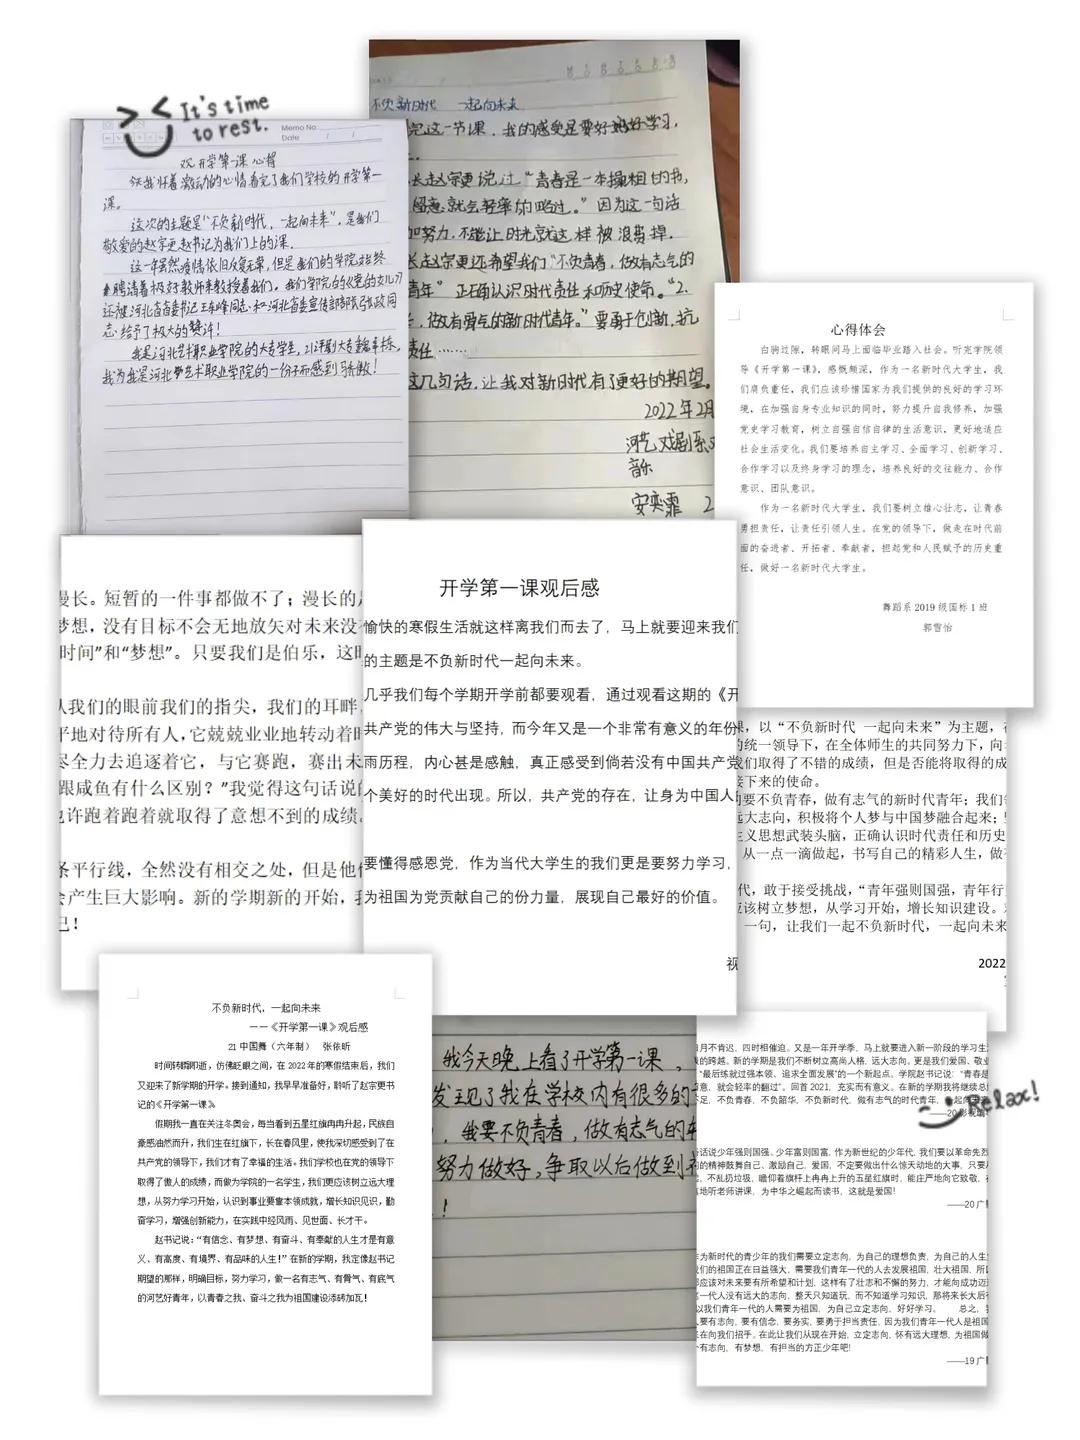 It's time
to rest.
Memo No.
Date / /
观开学第一课心得
今天我怀着激动的心情看完了我们学校的开学第一
课。
这次的主题是"不负新时代,一起向未来",是我们
敬爱的赵宗更赵书记为我们上的课。
这一年虽然疫情依旧反复无常,但是我们的学院始终
聘请着极好教师来教授着我们。我们学院的《党的女儿》
还被河北省省委书记王东峰同志和河北省委宣传部部长张政同
志给予了极大的赞许!
我是河北艺术职业学院的大专学生,
我为我是河北艺术职业学院的一份子而感到骄傲!
不负新时代 一起向未来
完这一节课,我的感受是要好好学习,
长赵宗更说过"青春是一本操粗的书,
就会轻率的略过。"因为这一句话
努力,不能让时光就这样被浪费掉。
长赵宗更还希望我们"不负青春,做有志气的
青年"正确认识时代责任和历史使命。"2.
,做有骨气的新时代青年。"要勇于创新,抗
责任……
这几句话,让我对新时代有了更好的期望。
2022年2月
河艺戏剧系
音乐
安奕霏 2
心得体会
白驹过隙,转眼间马上面临毕业踏入社会。听完学院领
导《开学第一课》,感慨颇深,作为一名新时代大学生,我
们肩负重任,我们应该珍惜国家为我们提供的良好的学习环
境,在加强自身专业知识的同时,努力提升自我修养,加强
党史学习教育,树立自强自信自律的生活意识,更好地适应
社会生活变化。我们要培养自主学习、全面学习、创新学习、
合作学习以及终身学习的理念,培养良好的交往能力、合作
意识、团队意识。
作为一名新时代大学生,我们要树立雄心壮志,让青春
勇担责任,让责任引领人生。在党的领导下,做走在时代前
面的奋进者、开拓者、奉献者,担起党和人民赋予的历史重
任,做好一名新时代大学生。
舞蹈系 2019 级国标 1 班
郭雪怡
漫长。短暂的一件事都做不了;漫长的
梦想,没有目标不会无地放矢对未来没
时间"和"梦想"。只要我们是伯乐,这
从我们的眼前我们的指尖,我们的耳畔
平地对待所有人,它就兢兢业业地转动着时
尽全力去追逐着它,与它赛跑,赛出未
跟咸鱼有什么区别?"我觉得这句话说的
也许跑着跑着就取得了意想不到的成绩。
条平行线,全然没有相交之处,但是他
会产生巨大影响。新的学期新的开始,我
己!
开学第一课观后感
愉快的寒假生活就这样离我们而去了,马上就要迎来我们
的主题是不负新时代一起向未来。
几乎我们每个学期开学前都要观看,通过观看这期的《开
共产党的伟大与坚持,而今年又是一个非常有意义的年份
雨历程,内心甚是感触,真正感受到倘若没有中国共产党
个美好的时代出现。所以,共产党的存在,让身为中国人
要懂得感恩党,作为当代大学生的我们更是要努力学习,
为祖国为党贡献自己的份力量,展现自己最好的价值。
视
课,以"不负新时代 一起向未来"为主题,
的统一领导下,在全体师生的共同努力下,向
我们取得了不错的成绩,但是否能将取得的成
接下来的使命。
要不负青春,做有志气的新时代青年;我们
远大志向,积极将个人梦与中国梦融合起来;
主义思想武装头脑,正确认识时代责任和历史
从一点一滴做起,书写自己的精彩人生,做
代,敢于接受挑战,"青年强则国强,青年行
应该树立梦想,从学习开始,增长知识建设。
一句,让我们一起不负新时代,一起向未来
2022
不负新时代,一起向未来
——《开学第一课》观后感
21 中国舞(六年制) 张依昕
时间转瞬即逝,仿佛眨眼之间,在 2022 年的寒假结束后,我们
又迎来了新学期的开学。接到通知,我早早准备好,聆听了赵宗更书
记的《开学第一课》。
假期我一直在关注冬奥会,每当看到五星红旗冉冉升起,民族自
豪感油然而升,我们生在红旗下,长在春风里,使我深切感受到了在
共产党的领导下,我们才有了幸福的生活。我们学校也在党的领导下
取得了傲人的成绩,而做为学院的一名学生,我们更应该树立远大理
想,从努力学习开始,认识到事业要靠本领成就,增长知识见识,勤
奋学习,增强创新能力,在实践中经风雨、见世面、长才干。
赵书记说:"有信念、有梦想、有奋斗、有奉献的人生才是有意
义、有高度、有境界、有品味的人生!"在新的学期,我定像赵书记
期望的那样,明确目标,努力学习,做一名有志气、有骨气、有底气
的河艺好青年,以青春之我、奋斗之我为祖国建设添砖加瓦!
我今天晚上看了开学第一课,
发现了我在学校内有很多的
,我要不负青春,做有志气的
努力做好,争取以后做到
!
月不肯迟,四时相催迫。又是一年开学季,马上就要进入新一阶段的学习生活
的跨越。新的学期是我们不断树立高尚人格,远大志向,更是我们爱国、敬业
"最后练就过强本领、追求全面发展"的一个新起点。学院赵书记说:"青春是
意,就会轻率的翻过"。回首 2021,充实而有意义。在新的学期我将继续总
不足,不负青春、不负韶华、不负新时代,做有志气的时代青年,一起向未来
——20 影视编
Relax!
话说少年强则国强、少年富则国富,作为新世纪的少年代,我们要以革命先烈
的精神鼓舞自己、激励自己,爱国,不定要做出什么惊天动地的大事,只要
,不乱扔垃圾,瞻仰着旗杆上冉冉上升的五星红旗时,能庄严地向它致敬,
地听老师讲课,为中华之崛起而读书,这就是爱国!
——20 广
作为新时代的青少年的我们需要立定志向,为自己的理想负责,为自己的人生
我们的祖国正在日益强大,需要我们青年一代的人去发展祖国,壮大祖国,所
都应该对未来要有所希望和计划,这样有了壮志和不懈的努力,才能向成功迈
一代人没有远大的志向,整天只知道玩,而不知道学习知识,那将来长大后
以我们青年一代的人需要为祖国,为自己立定志向,好好学习。 总之,
要有志向,要有信念,要务实,要勇于担当责任,因为我们青年一代人是祖国
在向我们招手。在此让我们从现在开始,立定志向,怀有远大理想,为祖国做
有志向,有梦想,有担当的方正少年吧!
——19 广